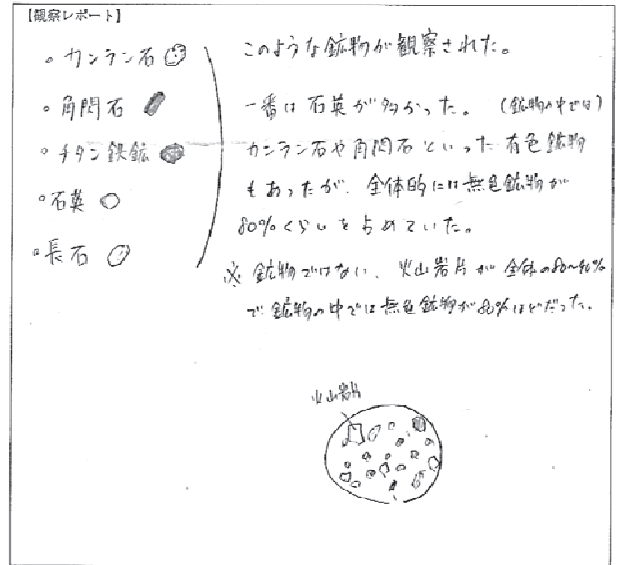 【観察レポート】
・カンラン石
・角閃石
・チタン鉄鉱
・石英
・長石
このような鉱物が観察された。
一番は石英が多かった。(鉱物の中では)
カンラン石や角閃石といった有色鉱物
もあったが、全体的には無色鉱物が
80%くらいを占めていた。
※鉱物ではない、火山岩片が全体の
で鉱物の中では無色鉱物が80%ほどだった。
火山岩片